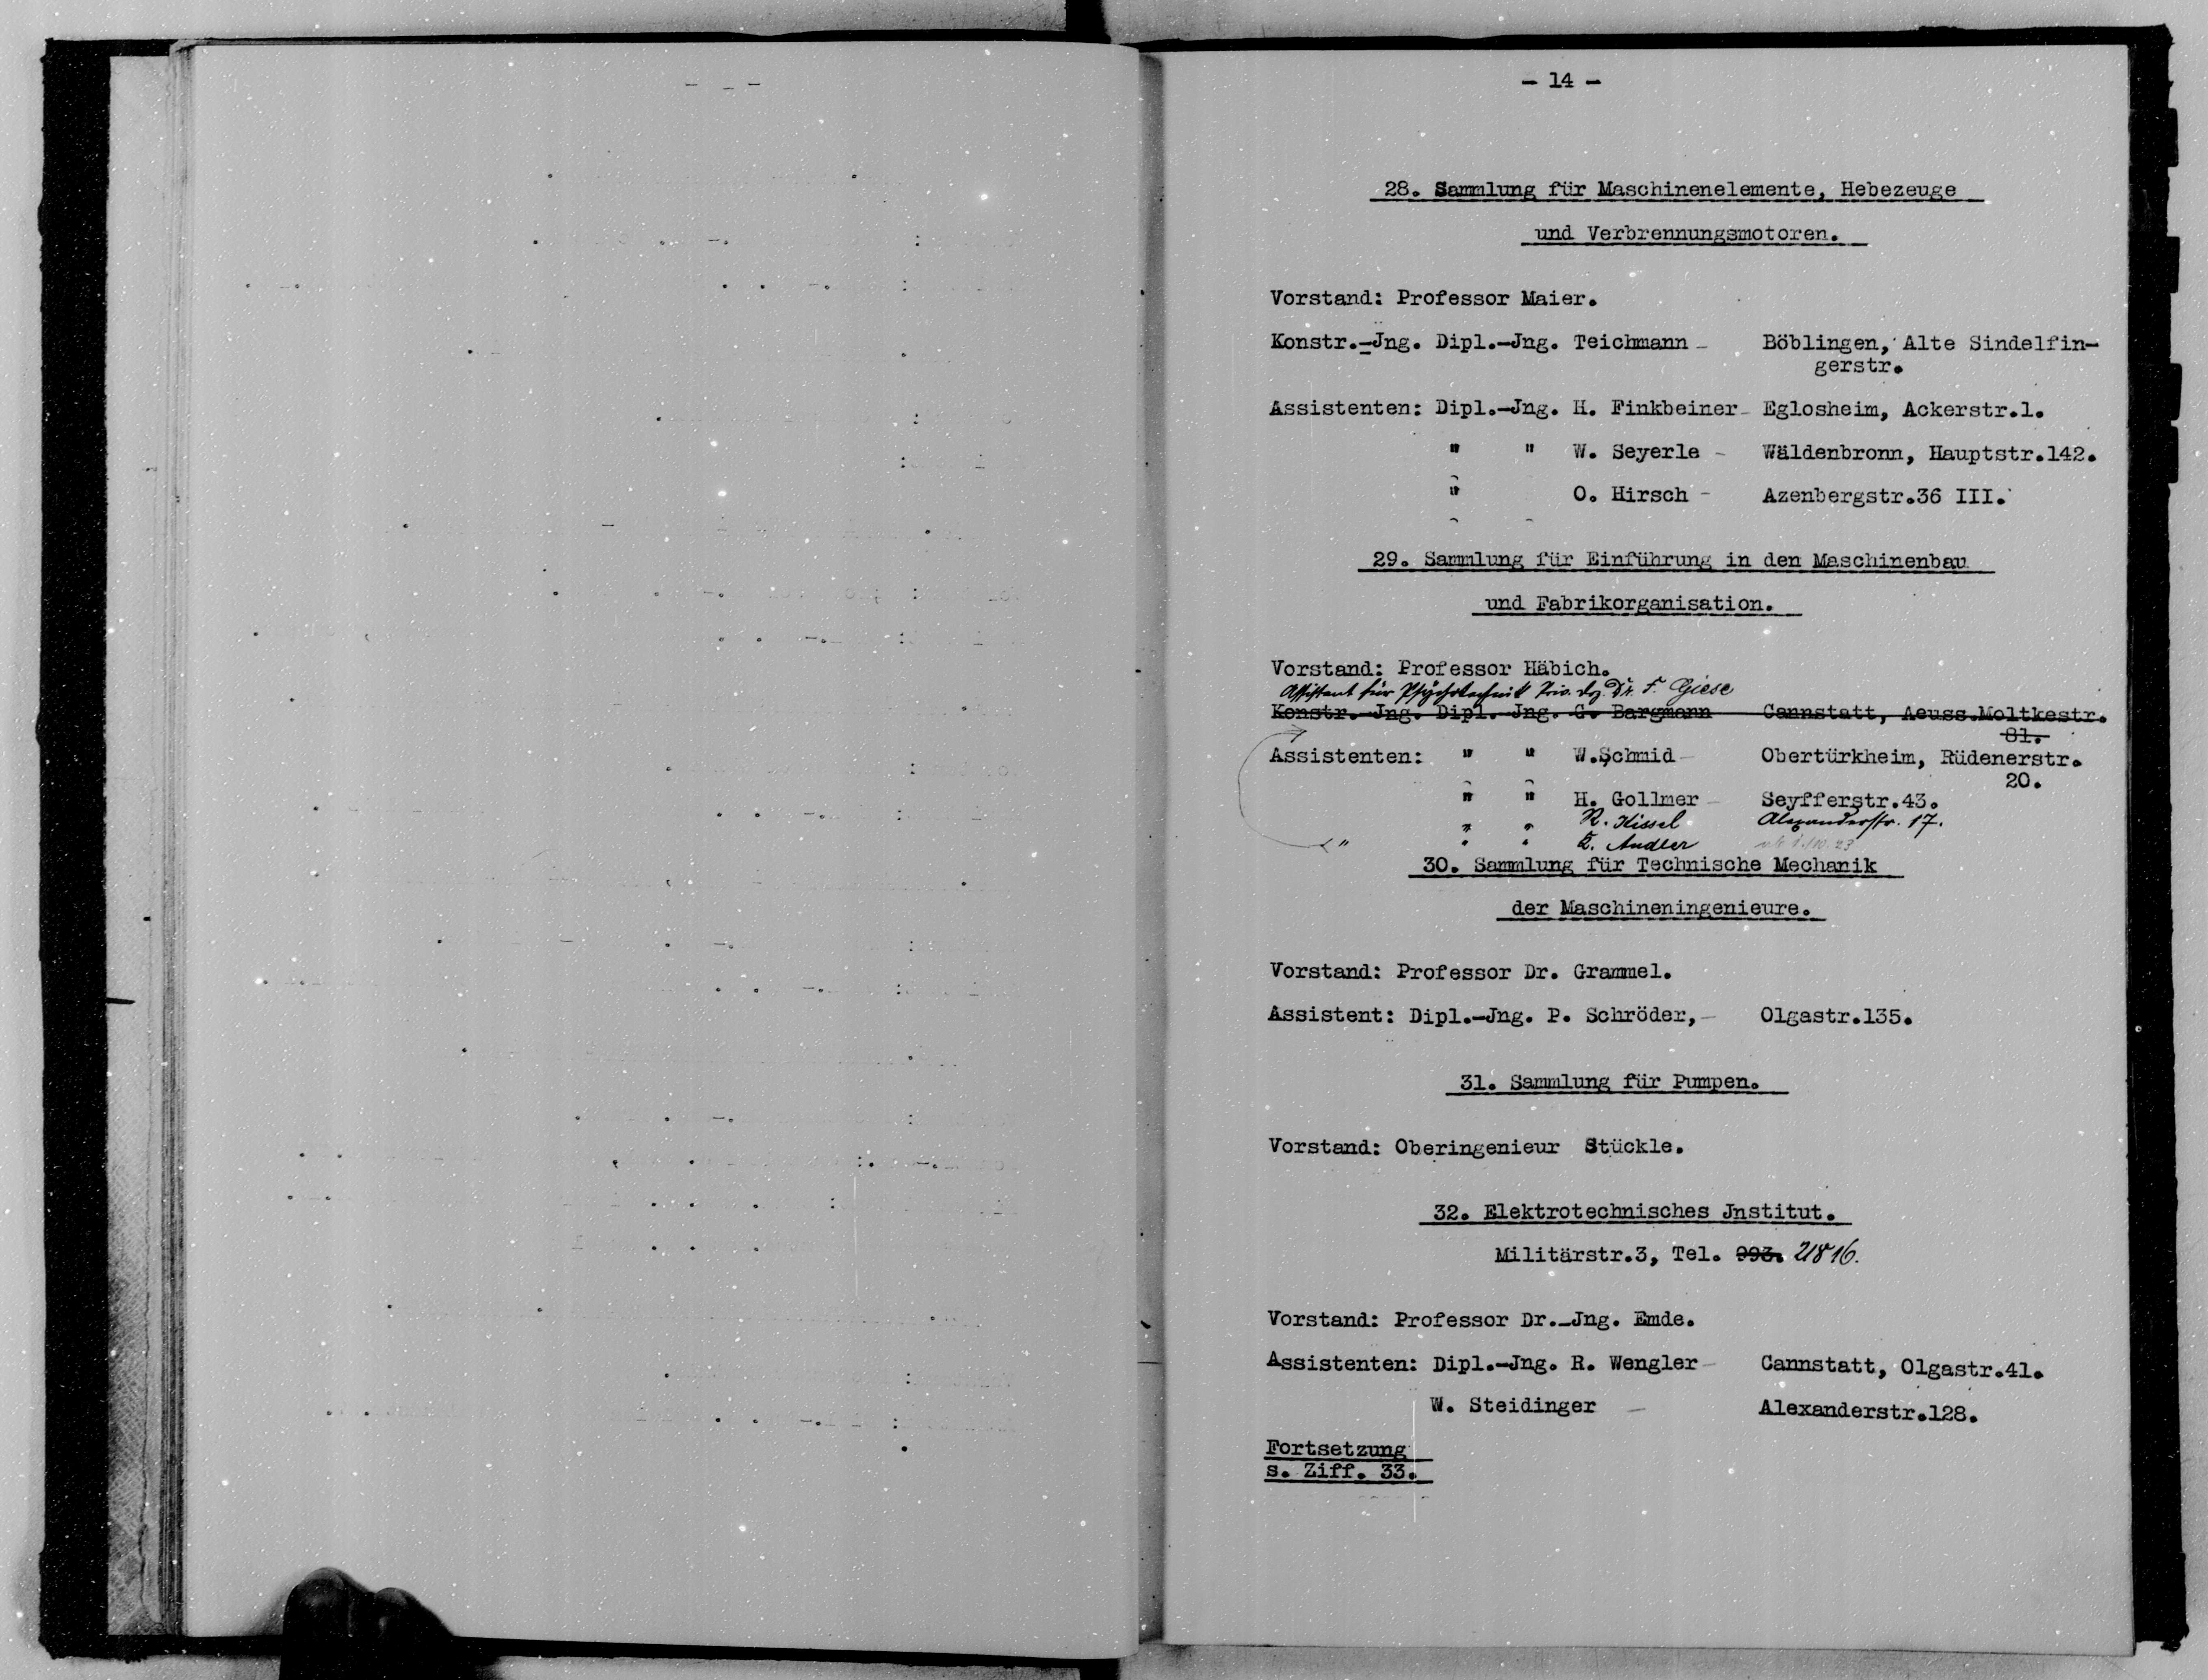 - 14 -
28. Sammlung für Maschinenelemente, Hebezeuge
und Verbrennungsmotoren.
Vorstand: Professor Maier.
Konstr.-Jng. Dipl.-Jng. Teichmann - Böblingen, Alte Sindelfin-
gerstr.
Assistenten: Dipl.-Jng. H. Finkbeiner - Eglosheim, Ackerstr.1.
" " W. Seyerle - Wäldenbronn, Hauptstr.142.
" O. Hirsch - Azenbergstr.36 III.
29. Sammlung für Einführung in den Maschinenbau
und Fabrikorganisation.
Vorstand: Professor Häbich.
Assistent für Psychotechnik Priv. Doz. Dr. F. Giese
Konstr.-Jng. Dipl.-Jng. G. Bargmann Cannstatt, Aeuss.Moltkestr.
81.
Assistenten: " " W.Schmid - Obertürkheim, Rüdenerstr.
20.
" " H. Gollmer - Seyfferstr.43.
" " R. Kissel Alexanderstr. 17.
" " " K. Andler
30. Sammlung für Technische Mechanik
der Maschineningenieure.
Vorstand: Professor Dr. Grammel.
Assistent: Dipl.-Jng. P. Schröder, - Olgastr.135.
31. Sammlung für Pumpen.
Vorstand: Oberingenieur Stückle.
32. Elektrotechnisches Jnstitut.
Militärstr.3, Tel. 993. 21816.
Vorstand: Professor Dr.-Jng. Emde.
Assistenten: Dipl.-Jng. R. Wengler - Cannstatt, Olgastr.41.
W. Steidinger - Alexanderstr.128.
Fortsetzung
s. Ziff. 33.